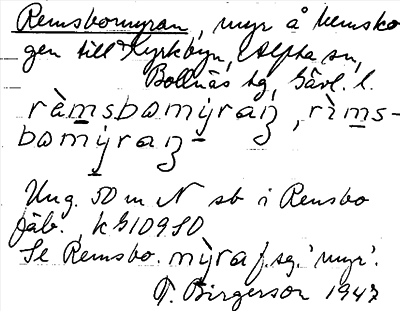 Remsbomyran, myr å hemsko-
gen till Kyrkbyn, Alfta sn,
Bollnäs tg, Gävl. l.
ràmsbomýraꞃ, rìms-
bomýraꞃ-
Ung. 50 m N sb i Rensbo
fäb.
Se Remsbo. mỳra f. sg. 'myr'.
T. Birgerson 1947